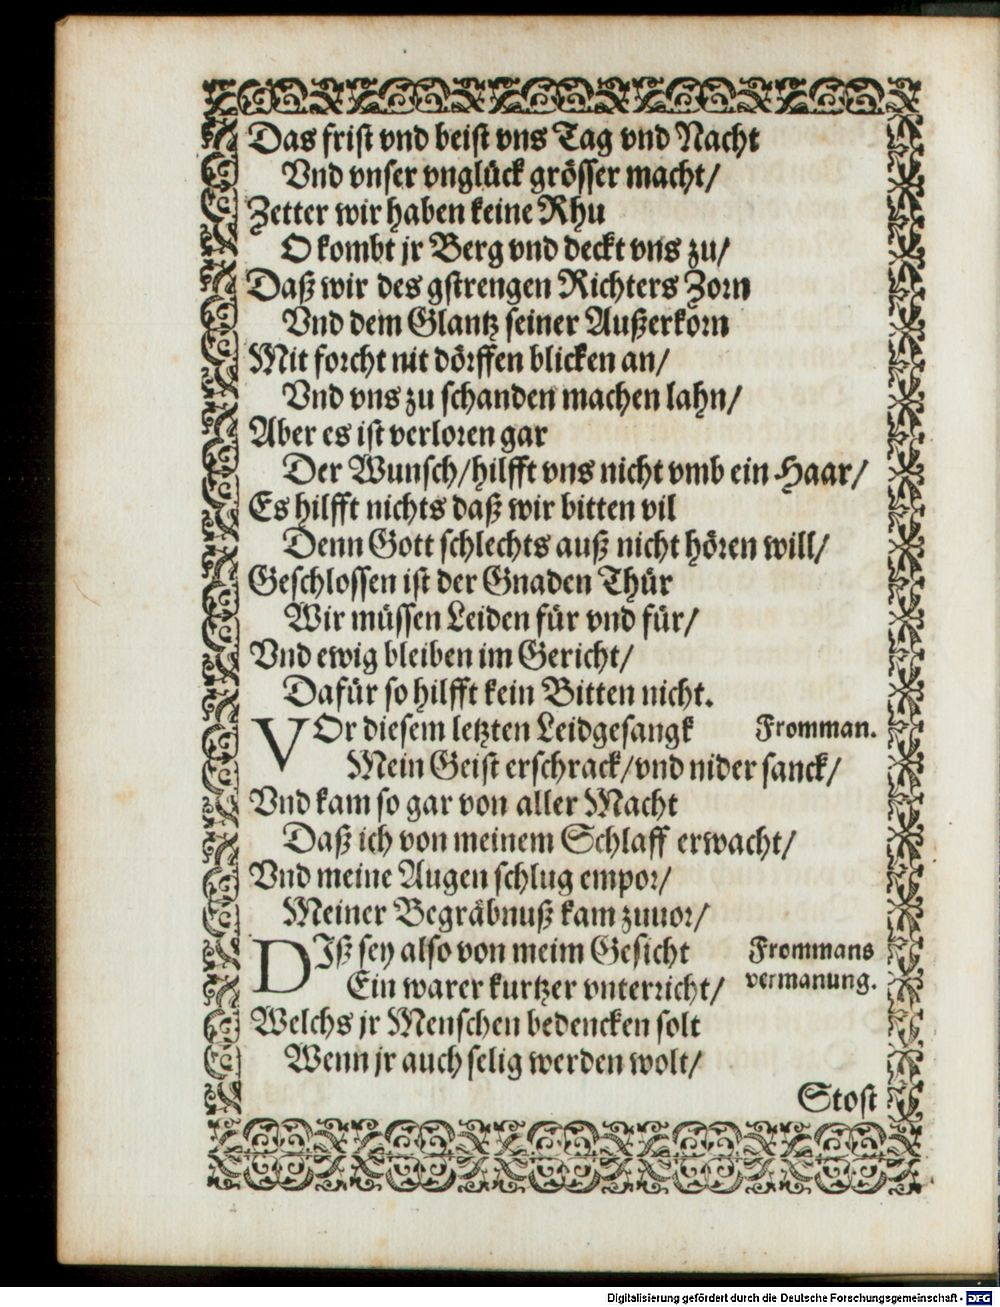 Das frist vnd beist vns Tag vnd Nacht
Vnd vnser vnglück grösser macht/
Zetter wir haben keine Rhu
O kombt jr Berg vnd deckt vns zu/
Daß wir des gstrengen Richters Zorn
Vnd dem Glantz seiner Außerkorn
Mit forcht nit dörffen blicken an/
Vnd vns zu schanden machen lahn/
Aber es ist verloren gar
Der Wunsch/hilfft vns nicht vmb ein Haar/
Es hilfft nichts daß wir bitten vil
Denn Gott schlechts auß nicht hören will/
Geschlossen ist der Gnaden Thür
Wir müssen Leiden für vnd für/
Vnd ewig bleiben im Gericht/
Dafür so hilfft kein Bitten nicht.
VOr diesem letzten Leidgesangk Fromman.
Mein Geist erschrack/vnd nider sanck/
Vnd kam so gar von aller Macht
Daß ich von meinem Schlaff erwacht/
Vnd meine Augen schlug empor/
Meiner Begräbnuß kam zuuor/
DIß sey also von meim Gesicht Frommans
Ein warer kurtzer vnterricht/ vermanung.
Welchs jr Menschen bedencken solt
Wenn jr auch selig werden wolt/
Stost
Digitalisierung gefördert durch die Deutsche Forschungsgemeinschaft - DFG